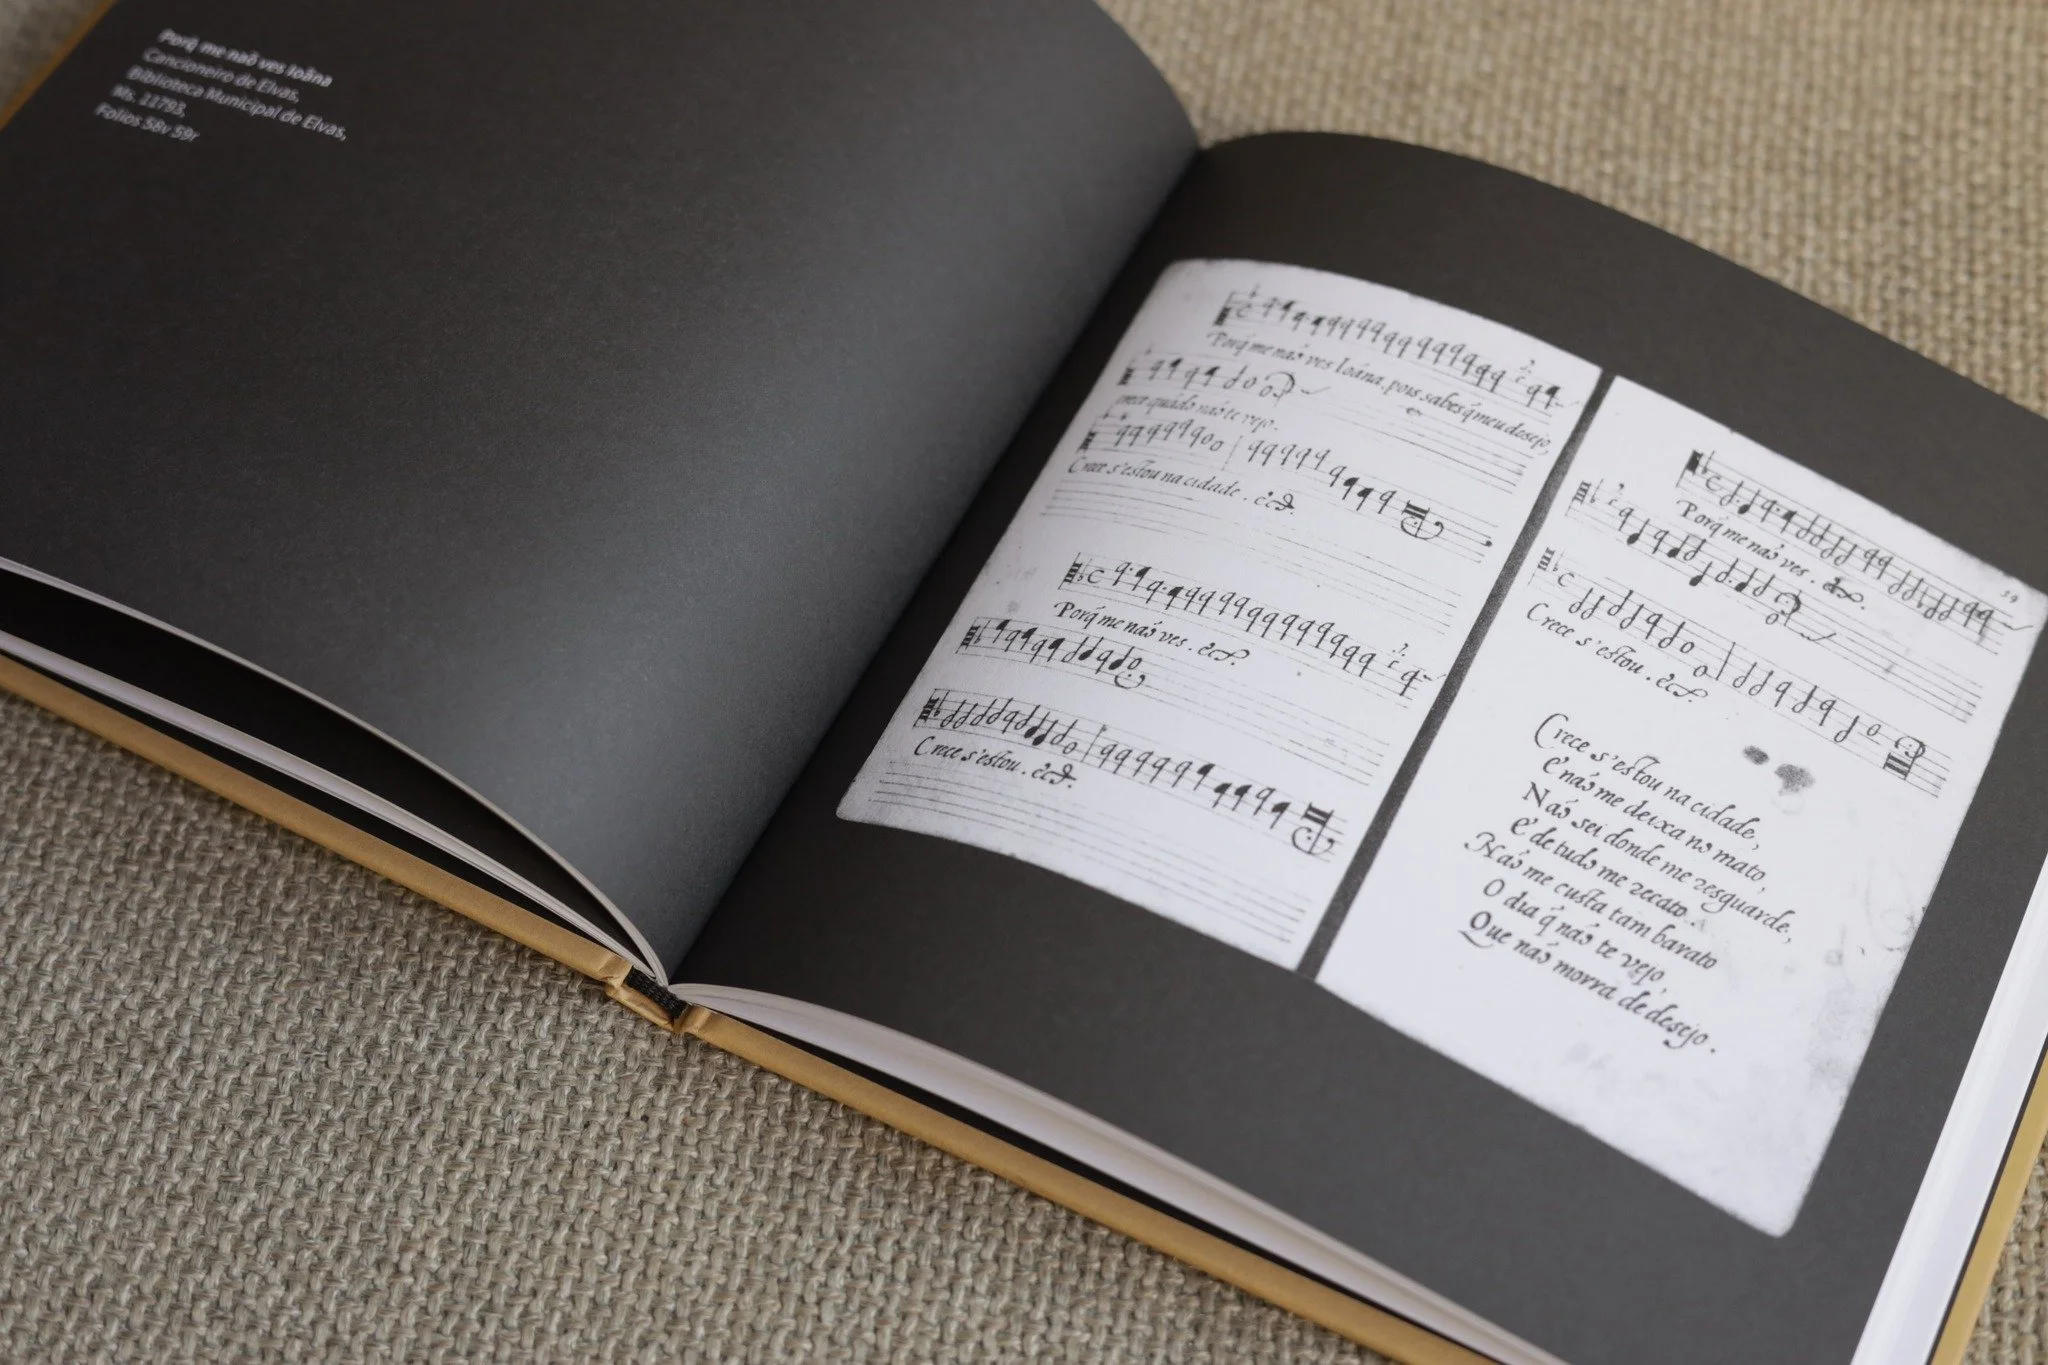 Porq̃ me naõ ves Ioãna
Cancioneiro de Elvas,
Biblioteca Municipal de Elvas,
Ms. 11793,
Folios 58v 59r
Porq̃ me naõ ves Ioána, pois sabes q̃ meu desejo,
crece quãdo naõ te vejo.
Crece s'estou na cidade. &c.
Porq̃ me naõ ves. &c.
Crece s'estou. &c.
59
Porq̃ me naõ ves. &c.
Crece s'estou. &c.
Crece s'estou na cidade,
E naõ me deixa no mato,
Naõ sei donde me resguarde,
E de tudo me recato.
Naõ me custa tam barato
O dia q̃ naõ te vejo,
Que naõ morra de desejo.